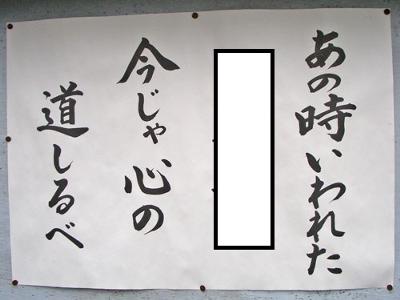 あの時いわれた
今じゃ心の
道しるべ